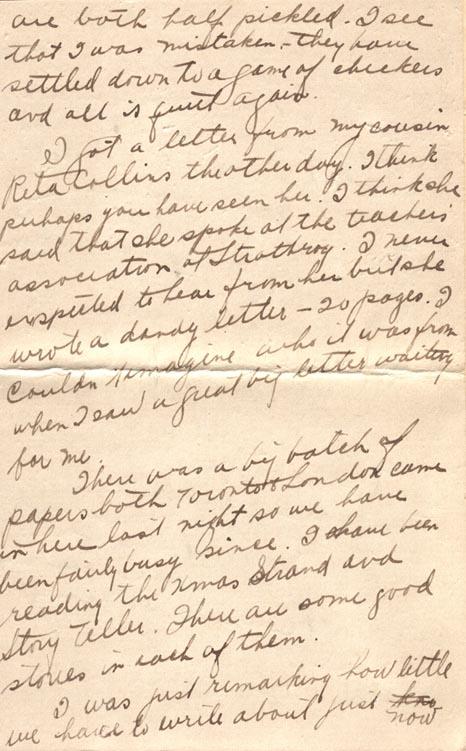 are both half pickled. I see
that I was mistaken - they have
settled down to a game of checkers
and all is quiet again.
I got a letter from my cousin
Reta Collins the other day. I think
perhaps you have seen her. I think she
said that she spoke at the teachers'
association at Strathroy. I never
expected to hear from her but she
wrote a dandy letter - 20 pages. I
couldn't imagine who it was from
when I saw a great big letter waiting
for me.
There was a big batch of
papers both Toronto & London came
in here last night so we have
been fairly busy since. I have been
reading the Xmas Strand and
Story Teller. There are some good
stories in each of them.
I was just remarking how little
we have to write about just now